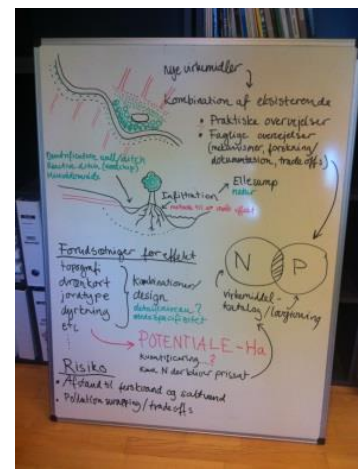 Nye virkemidler
Kombination af eksisterende
• Praktiske overvejelser
• Faglige overvejelser
(mekanismer, forskning/
dokumentation, trade offs)
Denitrification wall/ditch
Ellesump
natur
Infiltration
Forudsætninger for effekt
topografi
drænkort
jordtype
dyrkning
etc
Kombinationer/
design
detailniveau?
N P
virkemiddel-
katalog/lovgivning
POTENTIALE-Ha
Kvantificering?
Kun N der bliver prissat
Risiko
• Afstand til ferskvand og saltvand
• Pollution swapping/trade offs